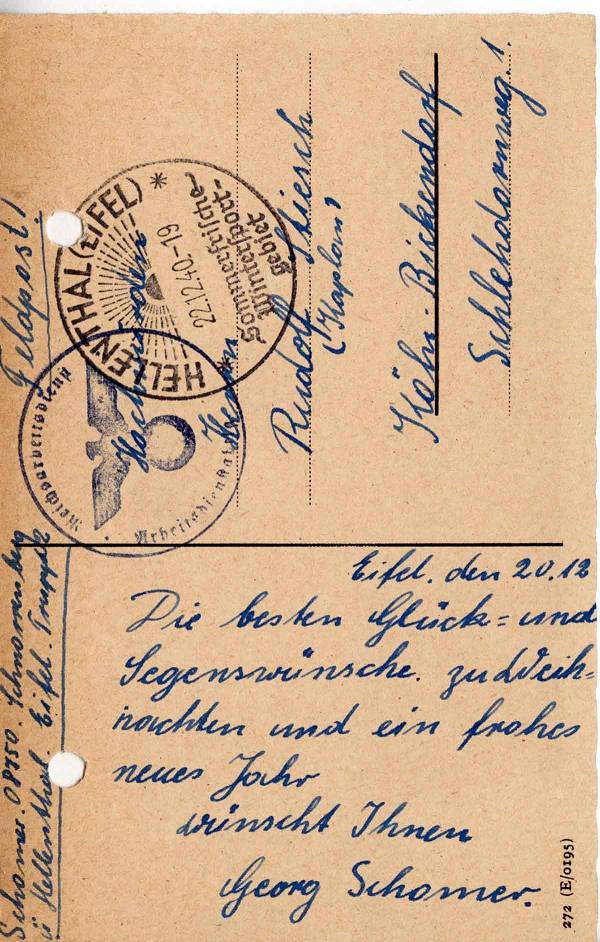 Feldpost!
HELLENTHAL (EIFEL)
22.12.40.-19
Sommerfrische
Wintersport-
gebiet
Reichsarbeitsdienst
Hochwürden
Herrn
Rudolf
(Kaplan)
Köln-Bickendorf
Schlehdornweg 1.
Schomer. 08750.
ü Hellenthal. Eifel.
Eifel. den 20.12
Die besten Glück= und
Segenswünsche. zu Weih=
nachten und ein frohes
neues Jahr
wünscht Ihnen
Georg Schomer.
272 (E/0195)